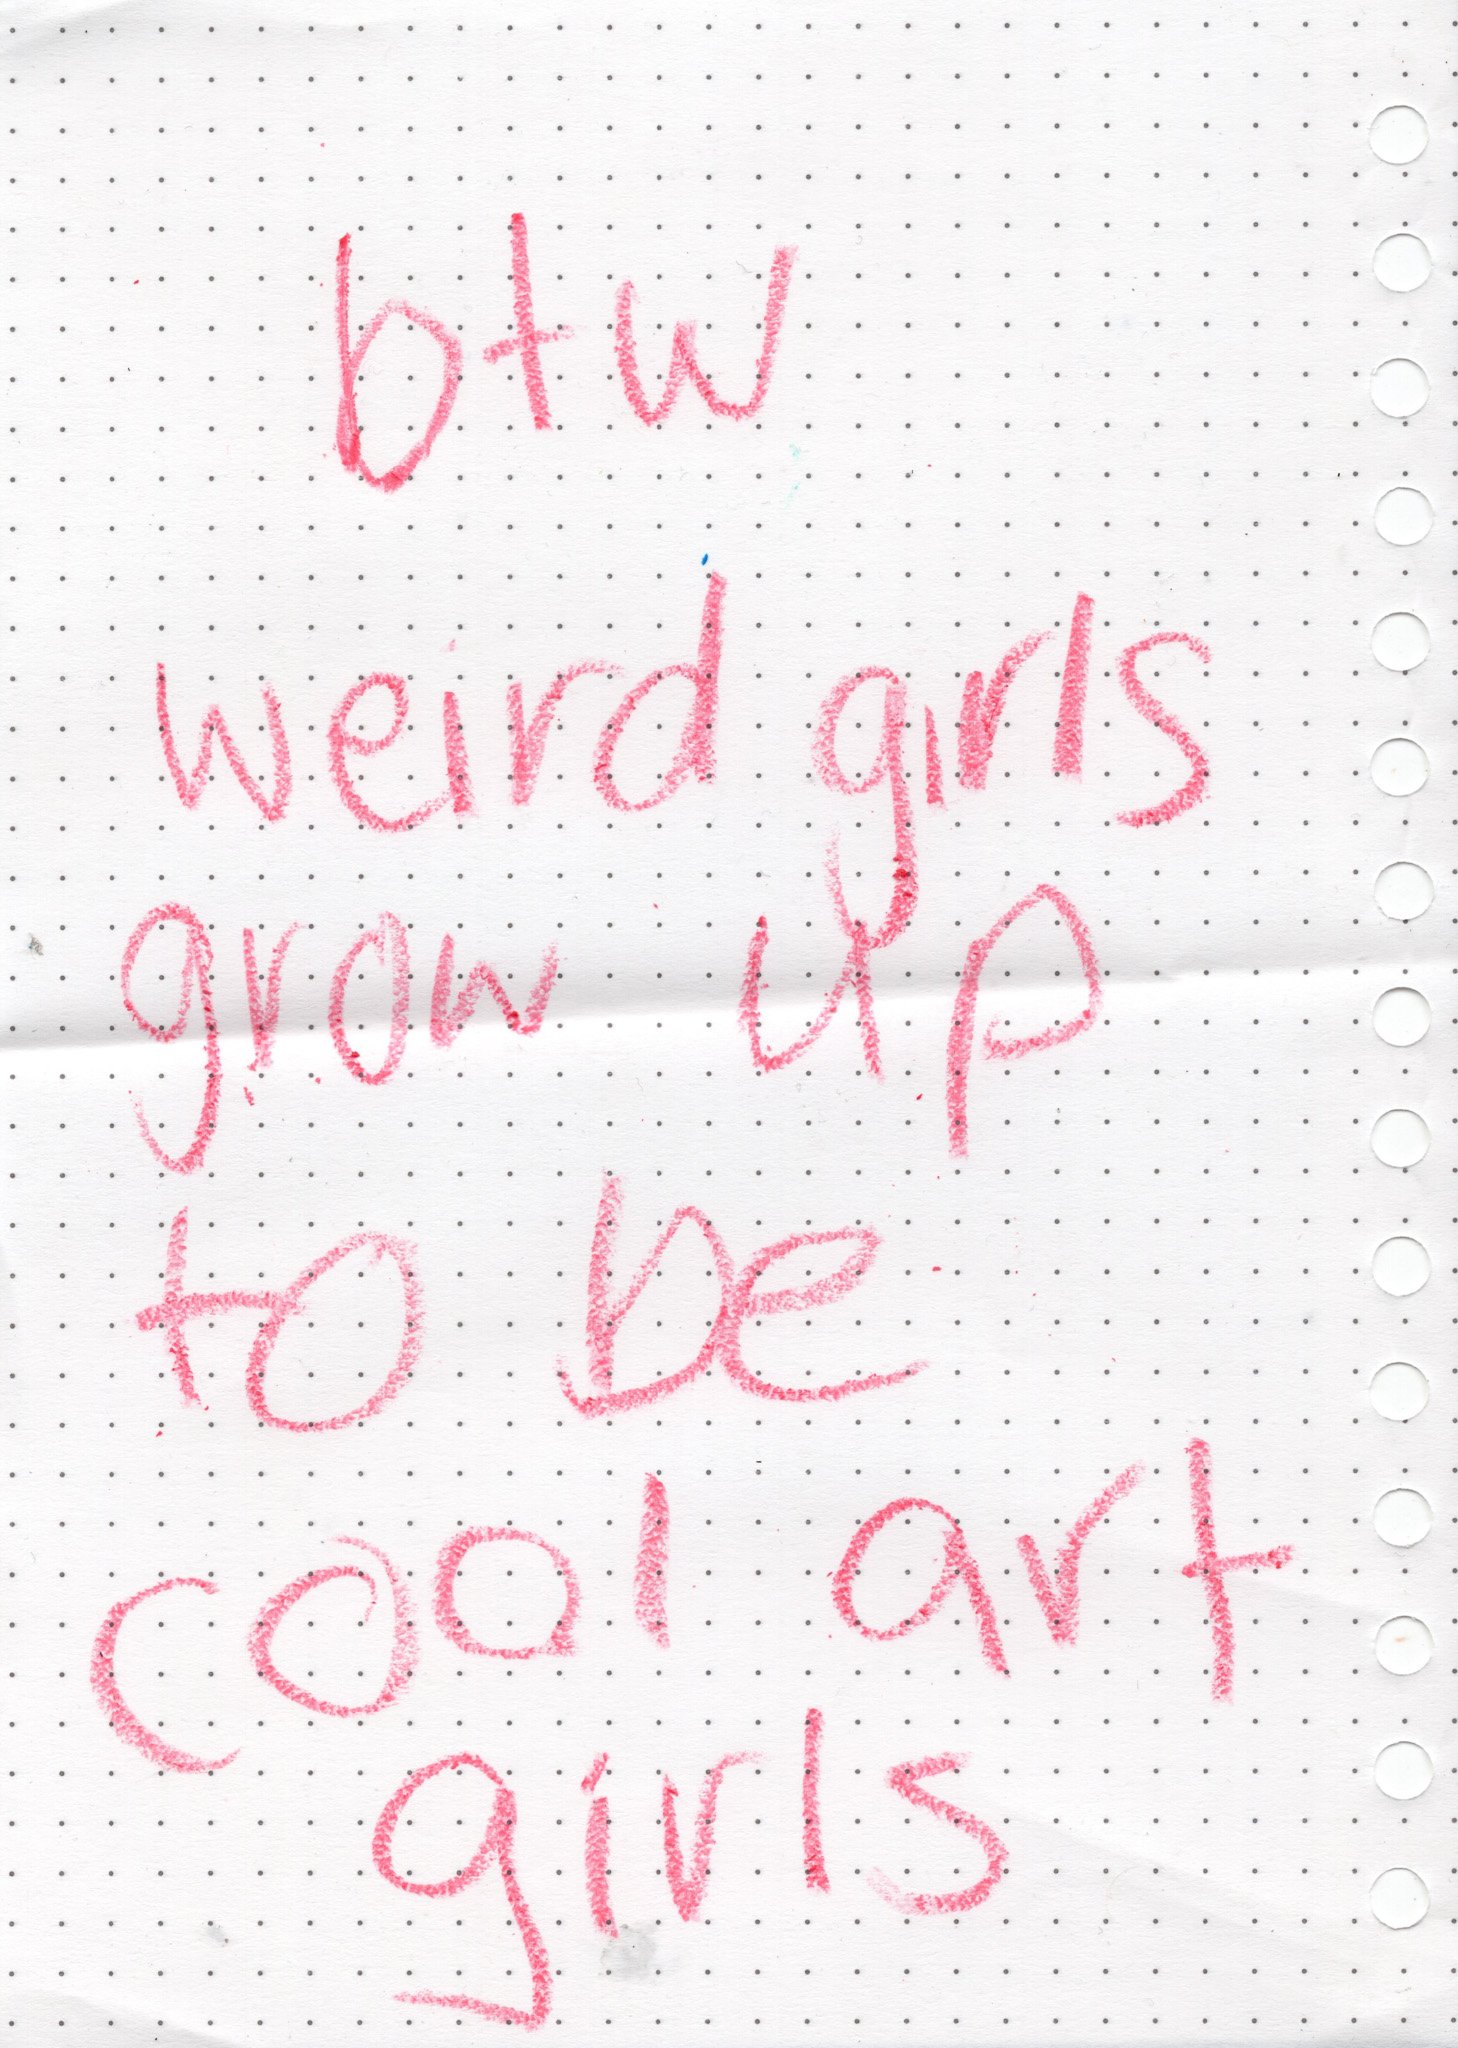 btw
weird girls
grow up
to be
cool art
girls